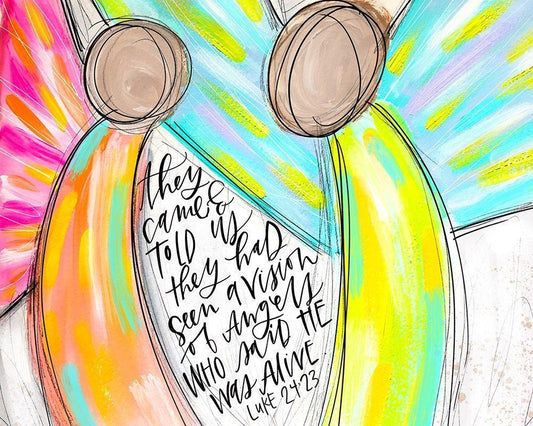 they
came &
TOLD us
they had
seen a vision
of Angels
WHO said HE
was ALIVE
LUKE 24:23